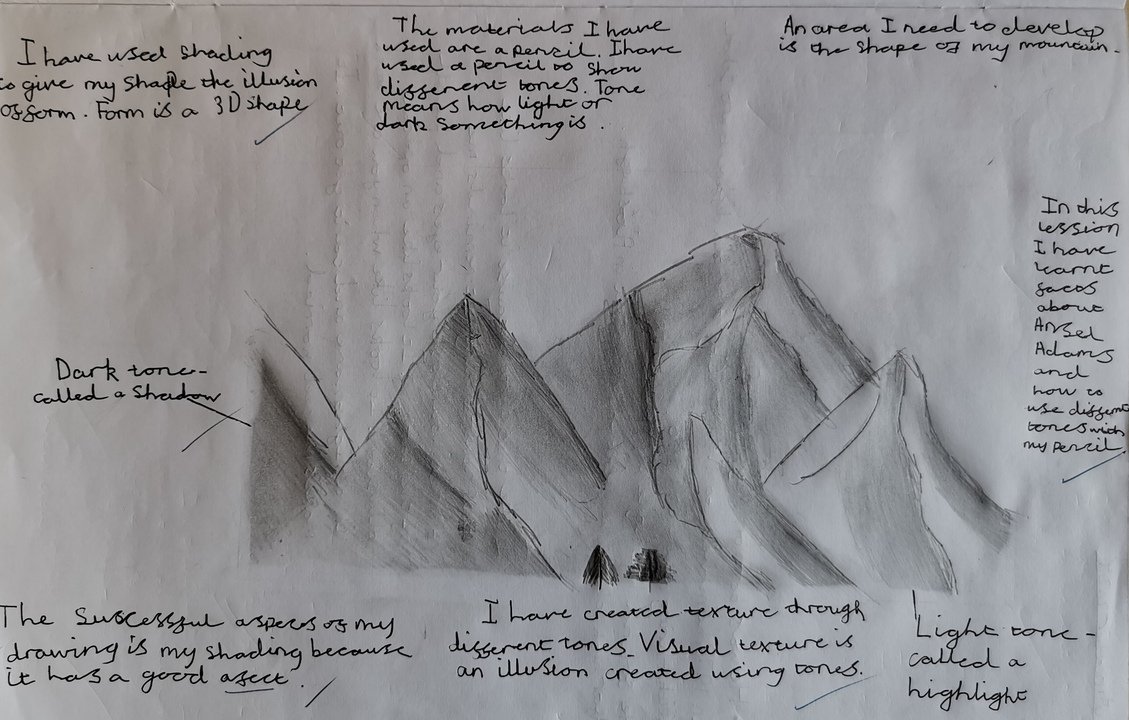 I have used shading
to give my shape the illusion
of form. Form is a 3D shape
The materials I have
used are a pencil. I have
used a pencil to show
different tones. Tone
means how light or
dark something is.
An area I need to develop
is the shape of my mountain.
In this
lession
I have
learnt
facts
about
Ansel
Adams
and
how to
use different
tones with
my pencil.
Dark tone-
called a shadow
The successful aspects of my
drawing is my shading because
it has a good afect.
I have created texture through
different tones. Visual texture is
an illusion created using tones.
Light tone -
called a
highlight